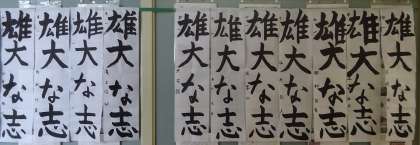 雄大な志
雄大な志
雄大な志
雄大な志
雄大な志
雄大な志
雄大な志
雄大な志
雄大な志
雄大な志
雄大な志